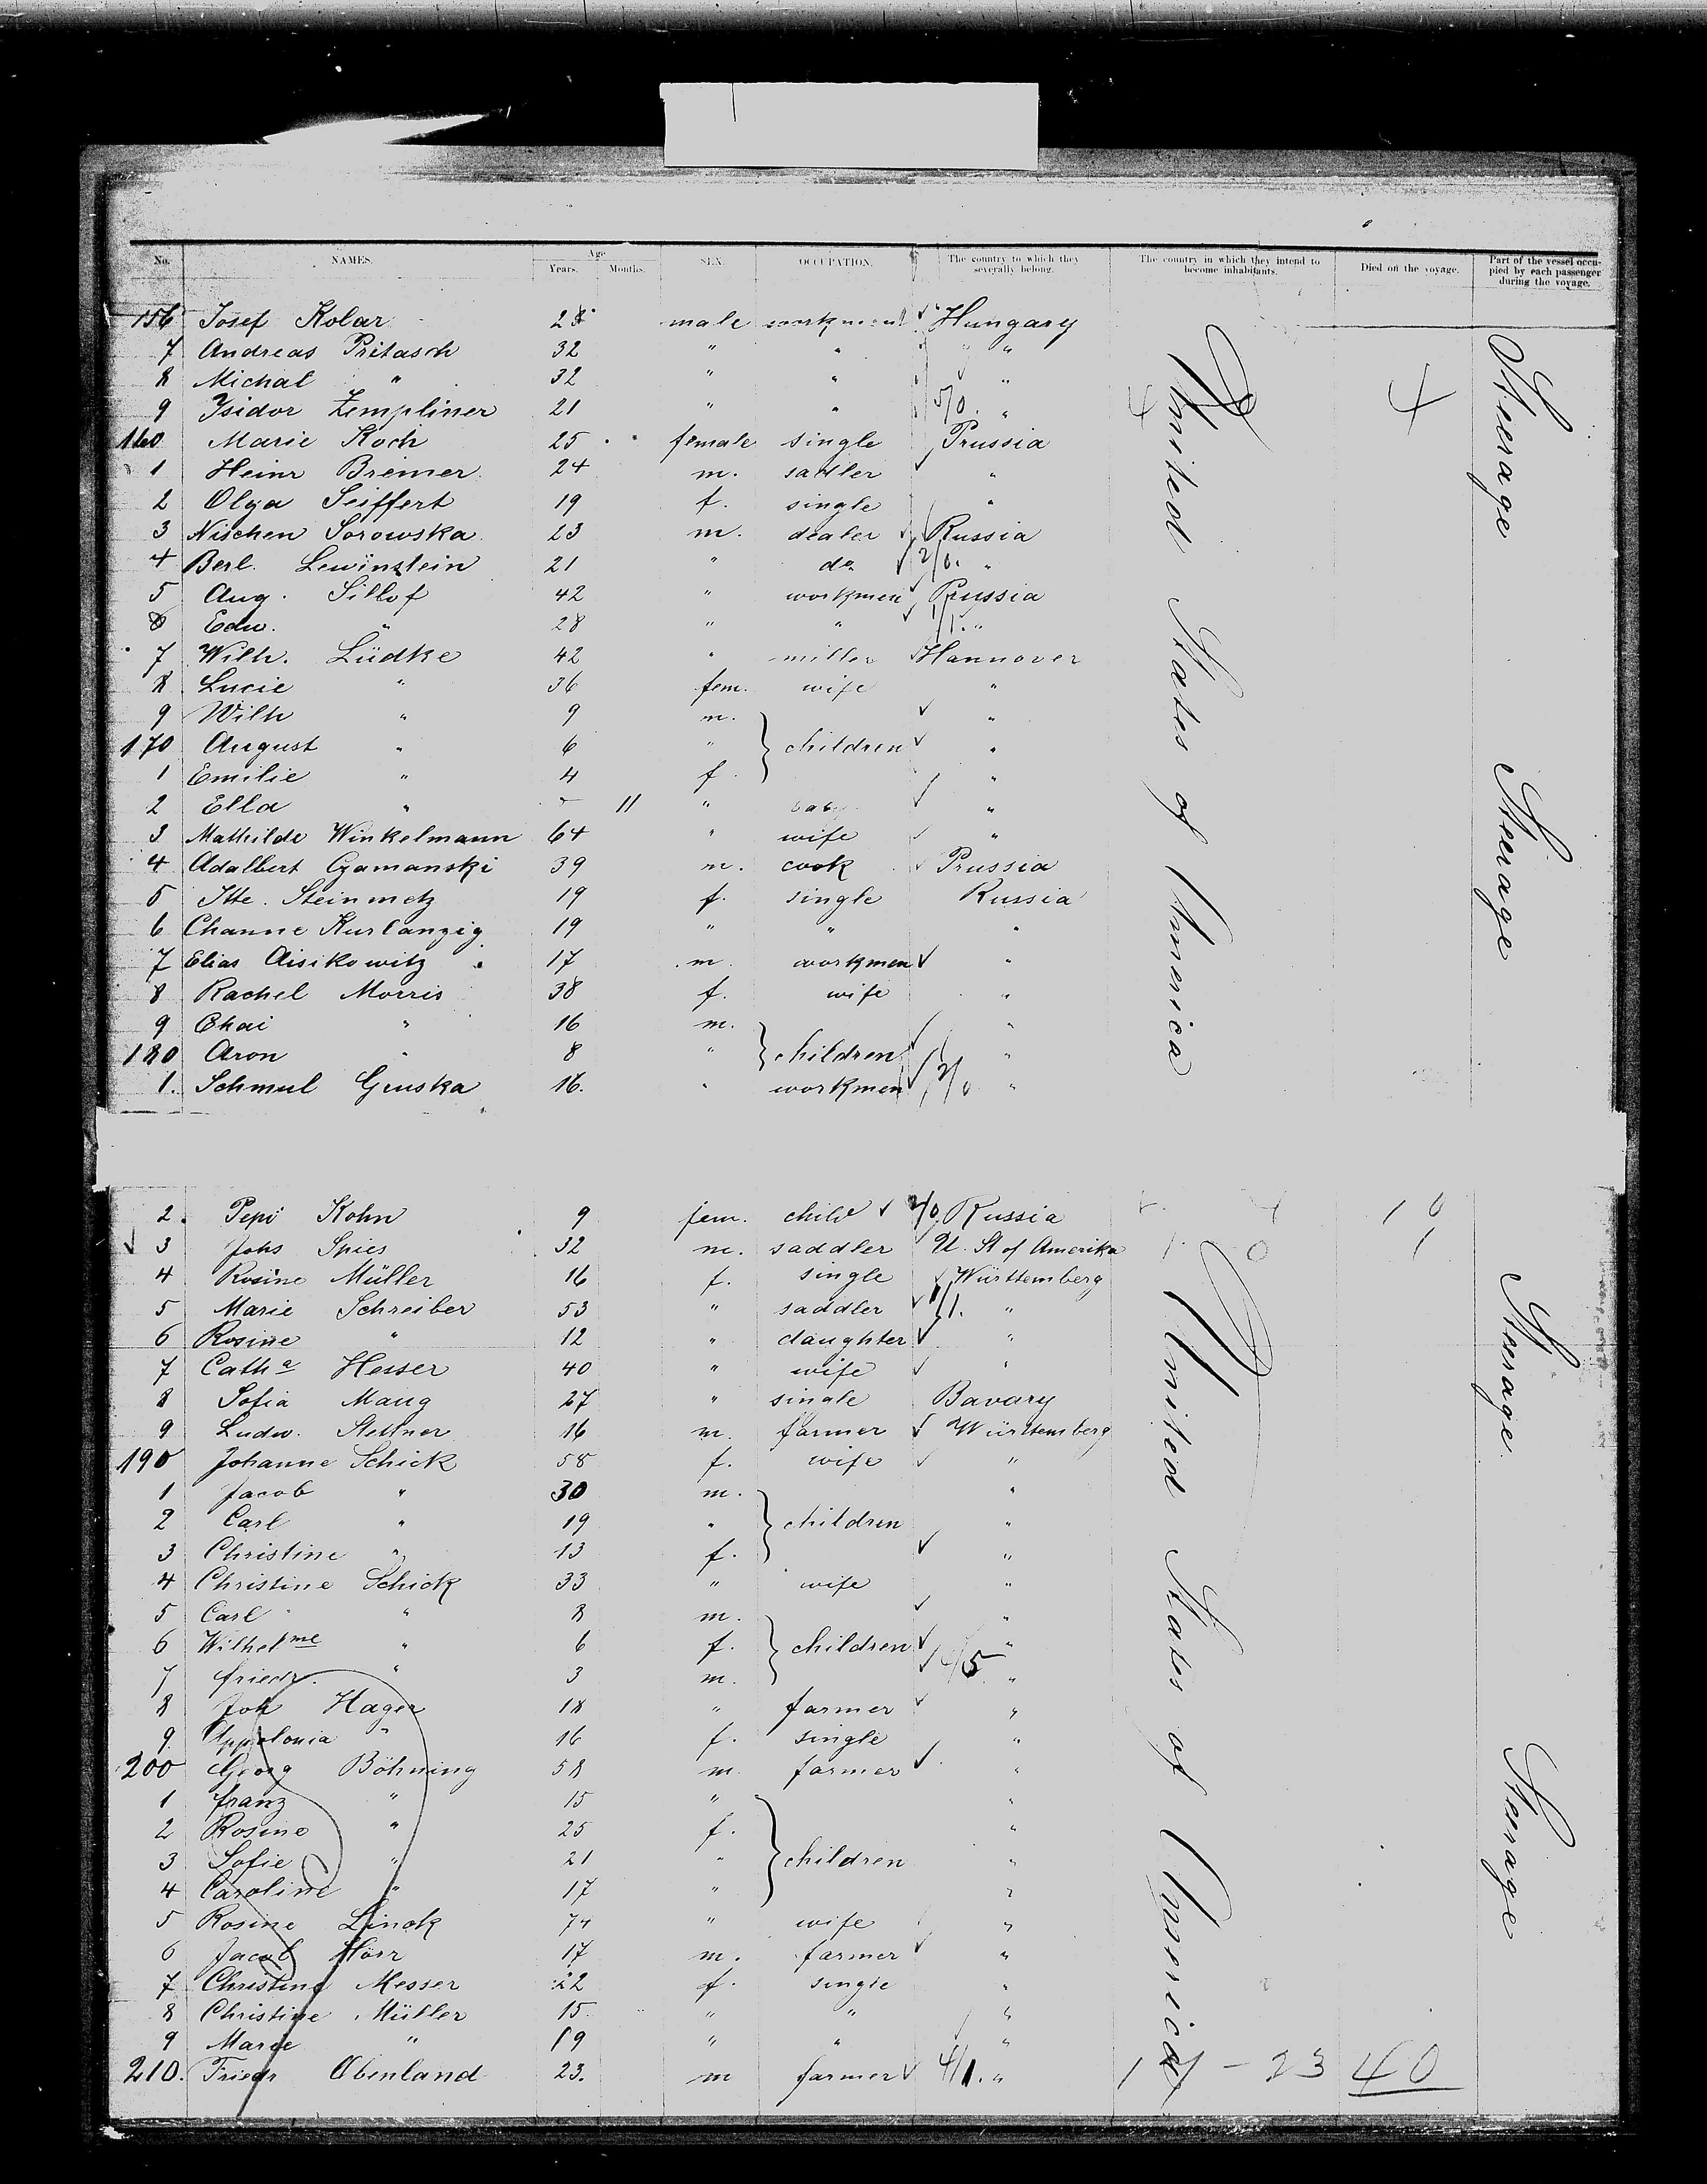 No. NAMES. Age Years. Months. SEX. OCCUPATION. The country to which they severally belong. The country in which they intend to become inhabitants. Died on the voyage. Part of the vessel occupied by each passenger during the voyage.
156 Josef Kolar 28 male workment Hungary
7 Andreas Pritasch 32 " " " "
8 Michal " 32 " " "
9 Ysidor Zempliner 21 " " 5/0. " 4 4
160 Marie Koch 25 female single Prussia
1 Heinr Bremer 24 m. sadler "
2 Olga Seiffert 19 f. single "
3 Nischen Sorowska 23 m. dealer Russia
4 Berl. Lewinstein 21 " do 2/0. "
5 Aug. Sillof 42 " workmen Prussia
6 Edw. " 28 " " 1/1. "
7 Wilh. Lüdke 42 " miller Hannover
8 Lucie " 36 fem. wife "
9 Wilh " 9 m. "
170 August " 6 " children "
1 Emilie " 4 f. "
2 Ella " - 11 " baby "
3 Mathilde Winkelmann 64 " wife "
4 Adalbert Cyamanski 39 m. cook Prussia
5 Itte. Steinmetz 19 f. single Russia
6 Channe Kurlanzig 19 " " "
7 Elias Aisikowitz 17 m. workmen "
8 Rachel Morris 38 f. wife "
9 Chai " 16 m. "
180 Aron " 8 " children "
1. Schmul Gruska 16. " workmen 2/0 "
United States of America
Steerage
Steerage
2. Pepi Kohn 9 fem. child 2/0. Russia
3 Johs Spies 32 m. saddler U. St of Amerika
4 Rosine Müller 16 f. single Württemberg
5 Marie Schreiber 53 " saddler 1/1. "
6 Rosine " 12 " daughter "
7 Catha Hesser 40 " wife "
8 Sofia Maug 27 " single Bavary
9 Ludw. Stettner 16 m. farmer Württemberg
190 Johanne Schick 58 f. wife "
1 Jacob " 30 m. "
2 Carl " 19 " children "
3 Christine " 13 f. "
4 Christine Schick 33 " wife "
5 Carl " 8 m. "
6 Wilhelme " 6 f. children "
7 friedr. " 3 m. 4/5 "
8 Joh Hager 18 " farmer "
9. Appolonia " 16 f. single "
200 Georg Böhning 58 m farmer "
1 franz " 15 " "
2 Rosine " 25 f. "
3 Sofie " 21 " children "
4 Caroline " 17 " "
5 Rosine Linck 74 " wife "
6 Jacob Horr 17 m. farmer "
7 Christine Messer 22 f. single "
8 Christine Müller 15 " " "
9 Marie " 19 " " "
210. Friedr Obenland 23. m farmer 4/1. " 17 - 23 40
United States of America
Steerage
Steerage